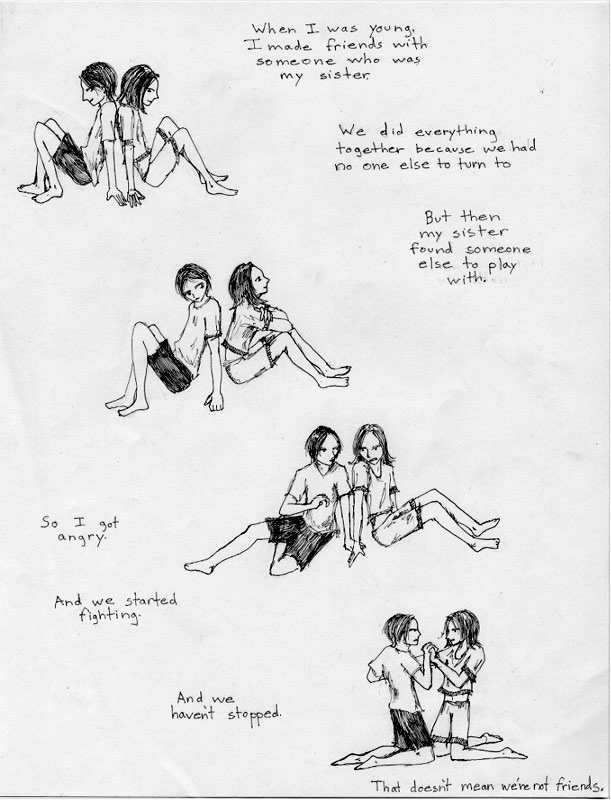 When I was young,
I made friends with
someone who was
my sister.
We did everything
together because we had
no one else to turn to
But then
my sister
found someone
else to play
with.
So I got
angry.
And we started
fighting.
And we
haven't stopped.
That doesn't mean we're not friends.